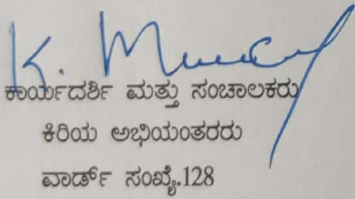 ಕಾರ್ಯದರ್ಶಿ ಮತ್ತು ಸಂಚಾಲಕರು
ಕಿರಿಯ ಅಭಿಯಂತರರು
ವಾರ್ಡ್ ಸಂಖ್ಯೆ.128